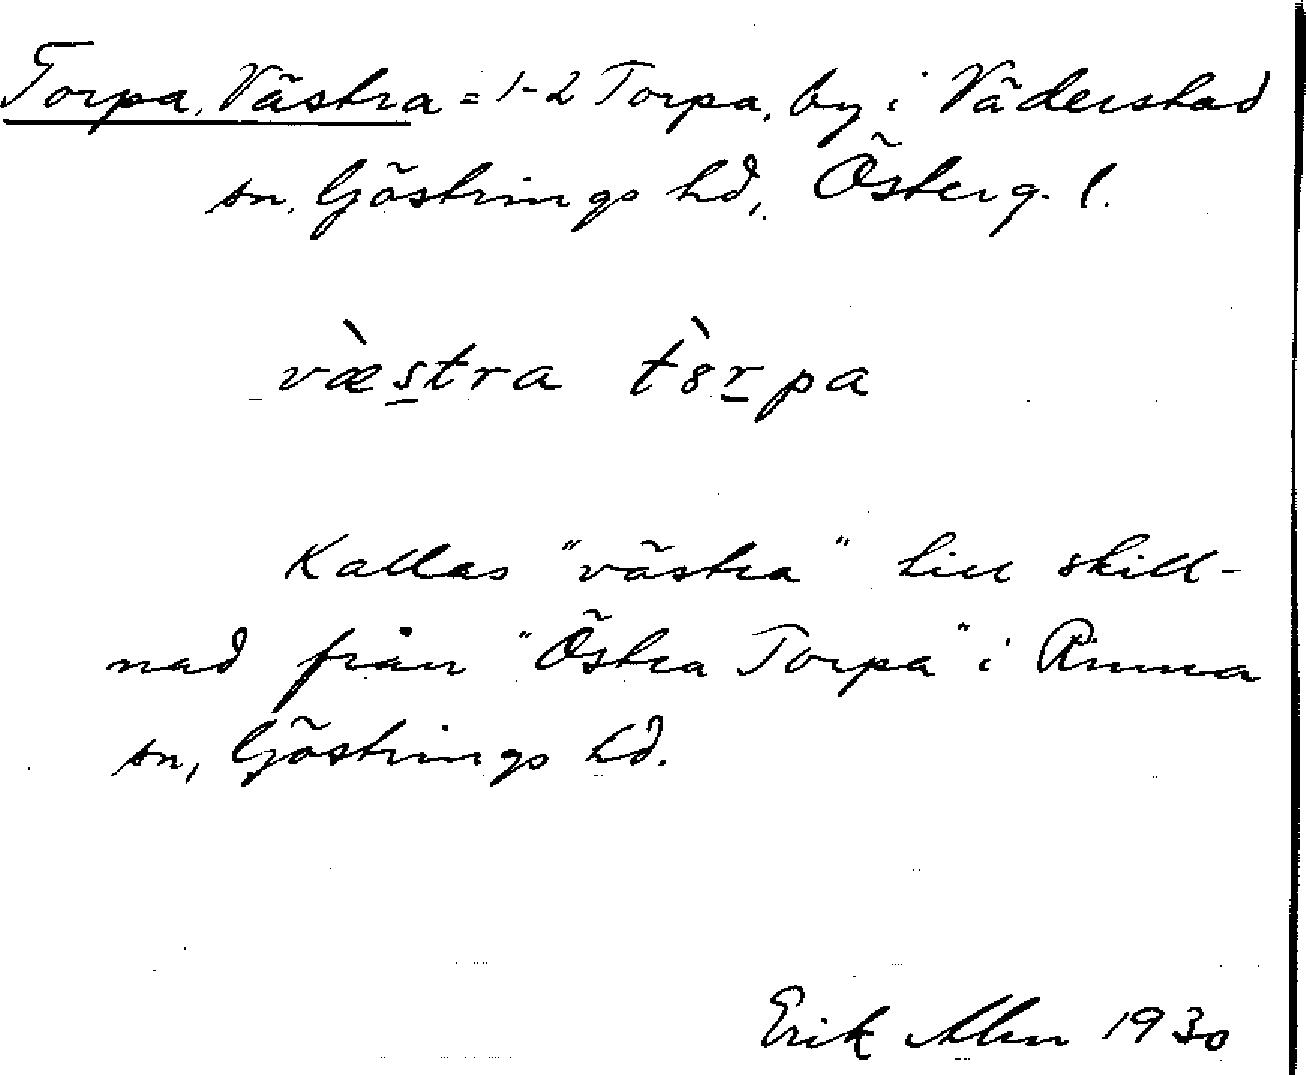 Torpa, Västra = 1-2 Torpa, by i Väderstad
sn, Göstrings hd, Österg. l.
væ̀stra tò̀rpa
Kallas "västra" till skill-
nad från "Östra Torpa" i Rinna
sn, Göstrings hd.
Erik 1930